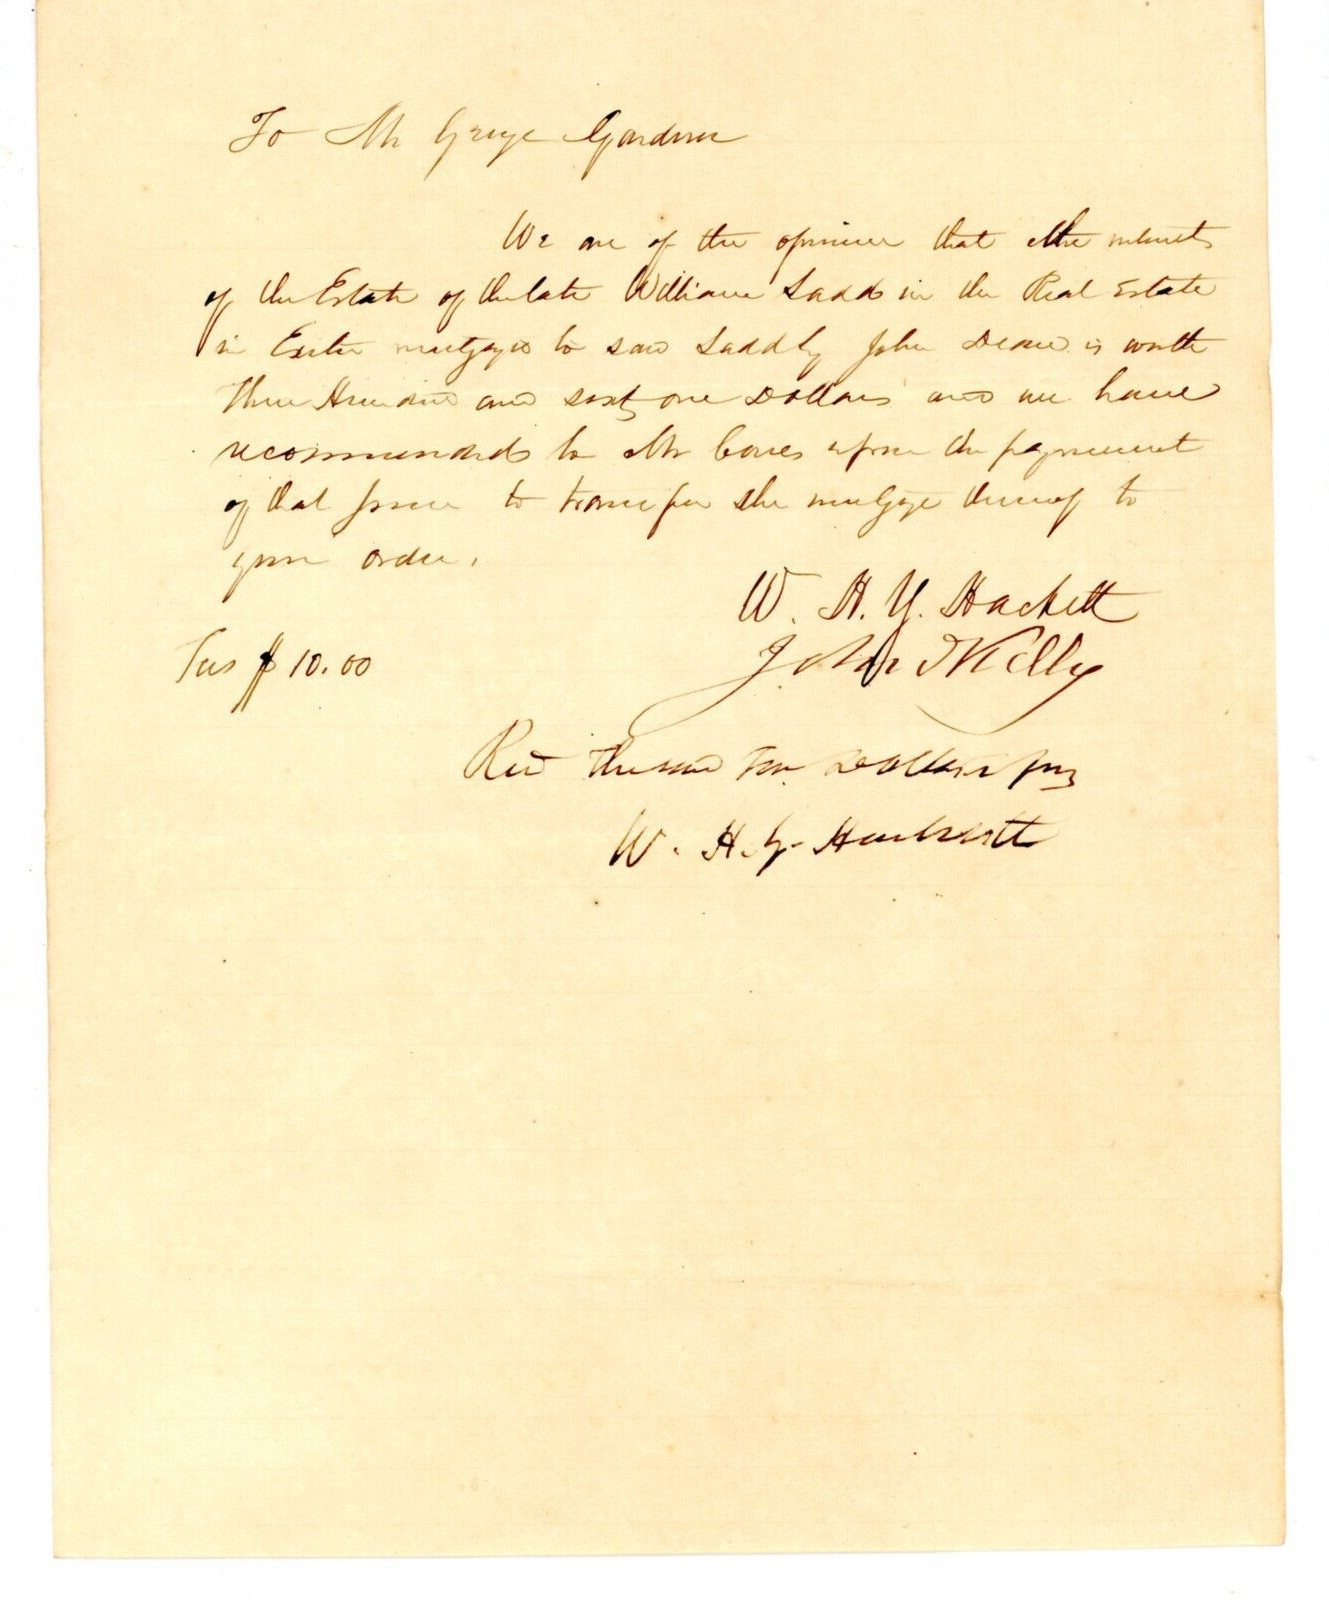 To Mr George Gardner
We are of the opinion that the interest
of the Estate of the late William Ladd in the Real Estate
in Exeter mortgaged to said Ladd by John Deane is worth
three Hundred and sixty one Dollars and we have
recommended to Mr Cones upon the payment
of that sum to transfer the mortgage thereof to
your order.
W. H. Y. Hackett
John Kelly
Fees $10.00
Recd the sum Ten Dollars
W. H. Y. Hackett